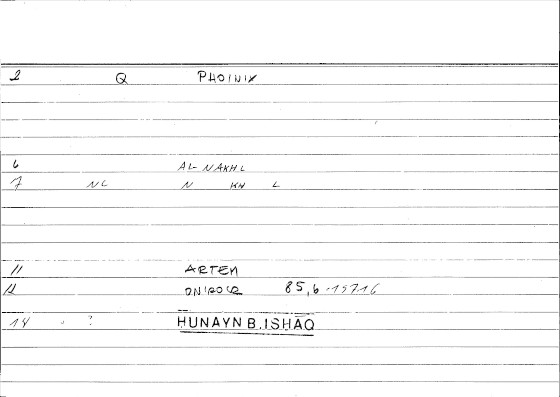 2 Q PHOINIX
6 AL-NAKHL
7 NC N KH L
11 ARTEM
12 ONIROCR 85,6 -15716
14 ? HUNAYN B. ISHAQ